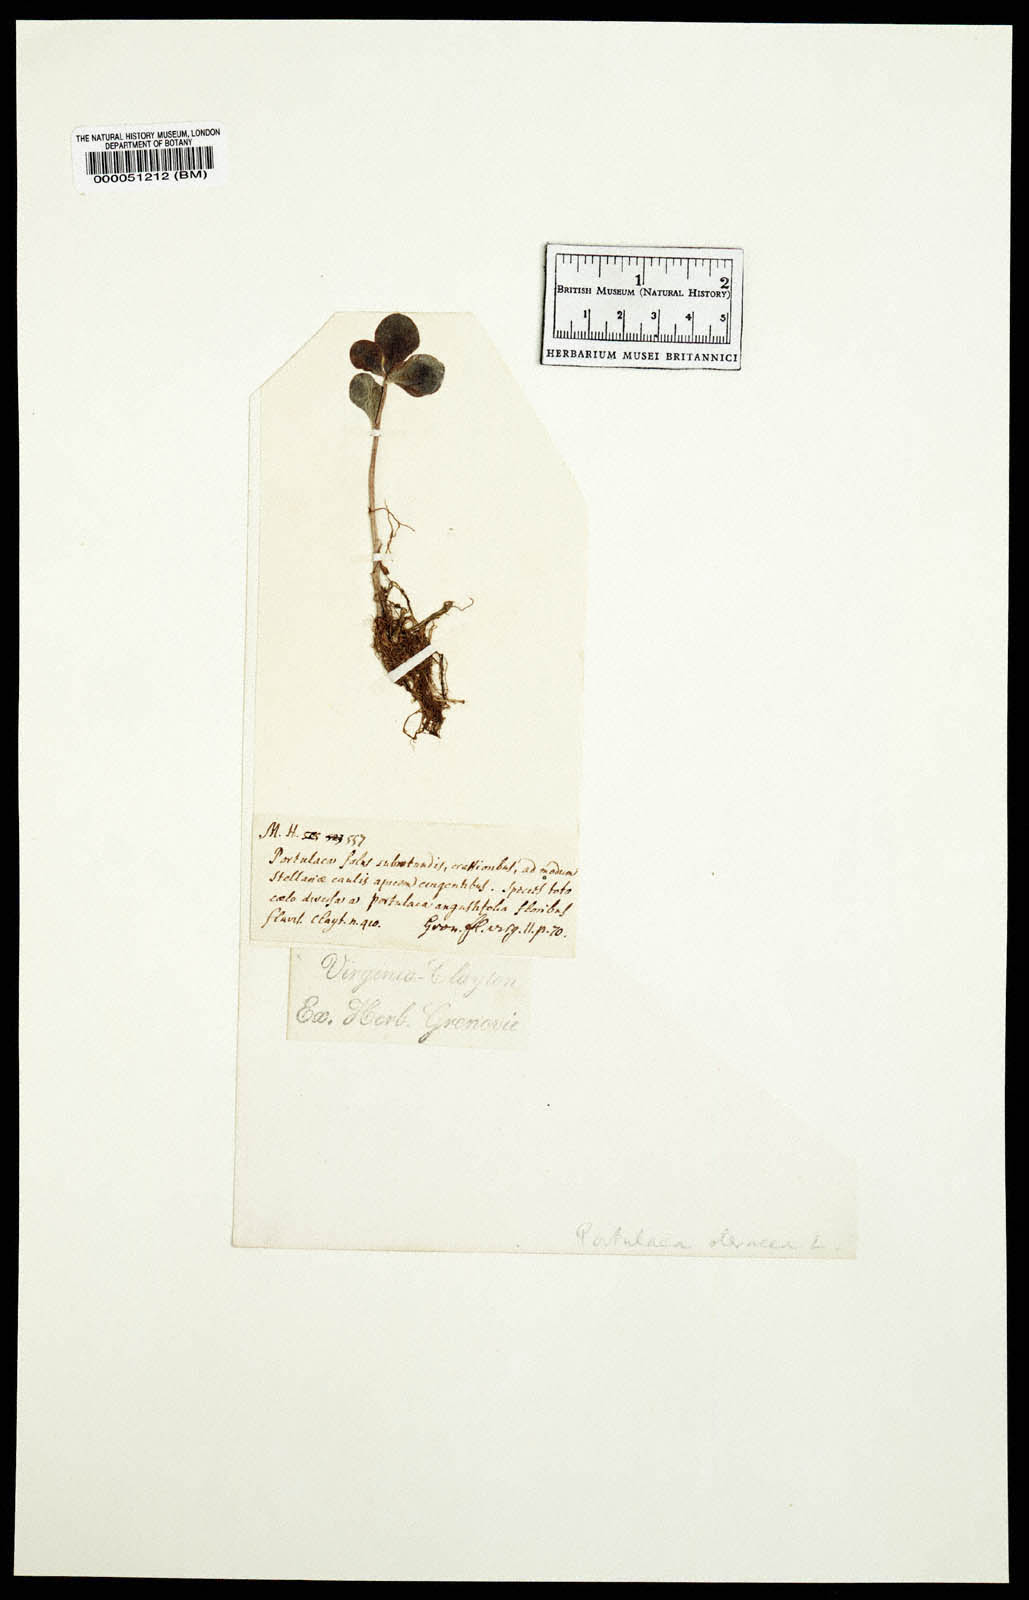 THE NATURAL HISTORY MUSEUM, LONDON
DEPARTMENT OF BOTANY
000051212 (BM)
1 2
BRITISH MUSEUM (NATURAL HISTORY)
1 2 3 4 5
HERBARIUM MUSEI BRITANNICI
M. H. 557
Portulaca foliis subrotundis, crassioribus, ad modum
Stellariæ caulis apicem cingentibus. Species toto
cœlo diversa a Portulaca angustifolia floribus
flavis. Clayt. n. 410. Gron. fl. virg. II. p. 70.
Virginia - Clayton
Ex. Herb. Gronovii
Portulaca oleracea L.